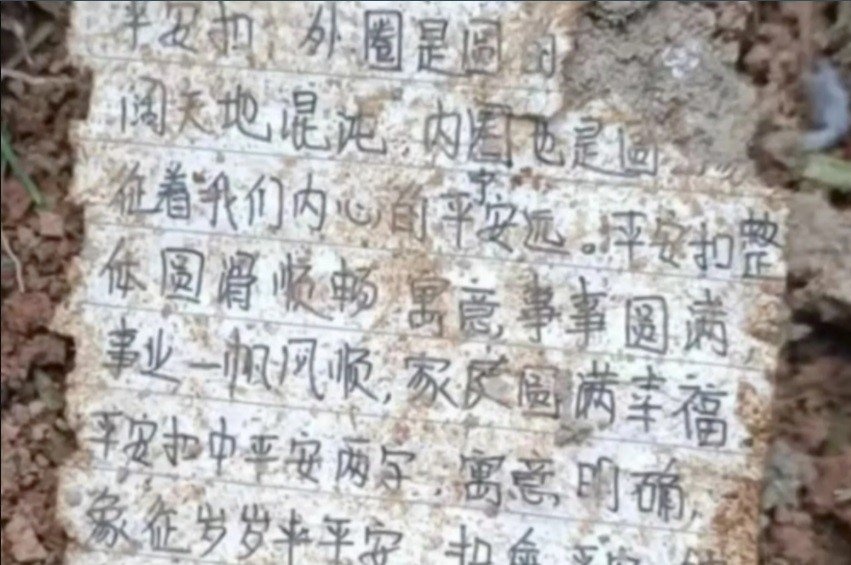 平安扣 外圈是圆的
阔天地混沌,内圈也是圆
征着我们内心的平安宁远。平安扣整
体圆滑顺畅 寓意,事事圆满,
事业一帆风顺,家庭圆满幸福
平安扣中平安两字,寓意明确,
象征岁岁平平安